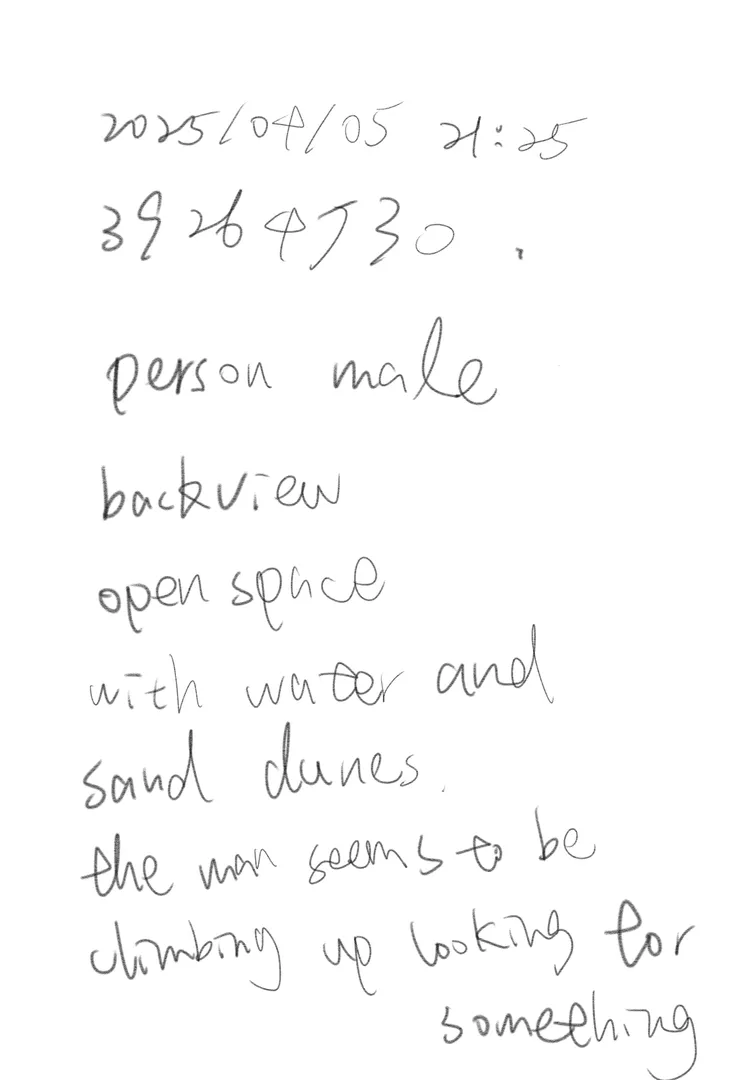 2025/04/05 21:25
39264530.
person male
backview
open space
with water and
sand dunes.
the man seems to be
climbing up looking for
something